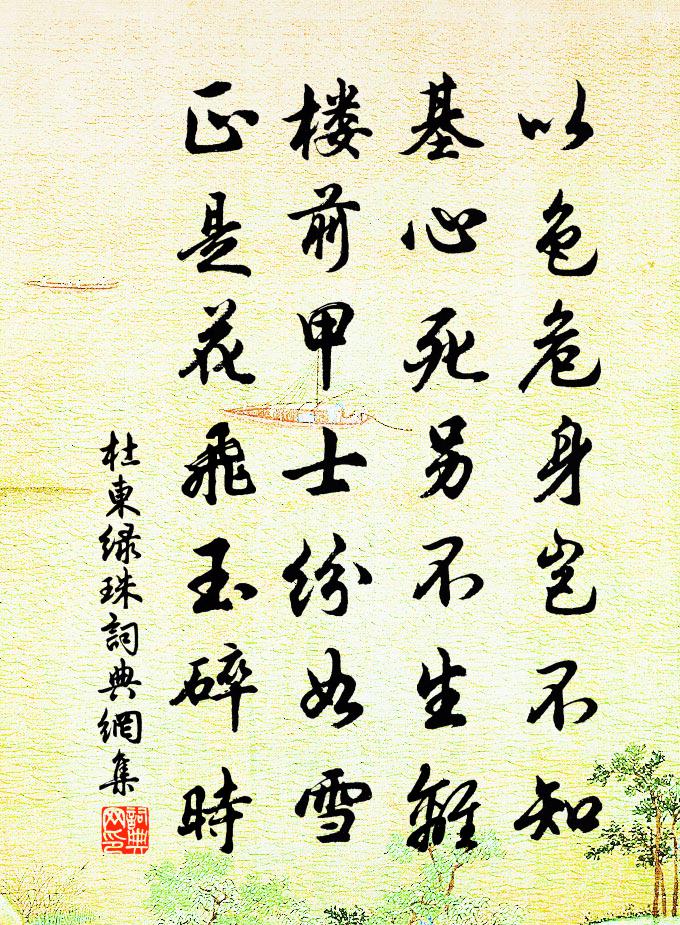 以色危身岂不知
基心死另不生離
楼前甲士纷如雪
正是花飛玉碎時
杜東绿珠詞典網集
詞典网印